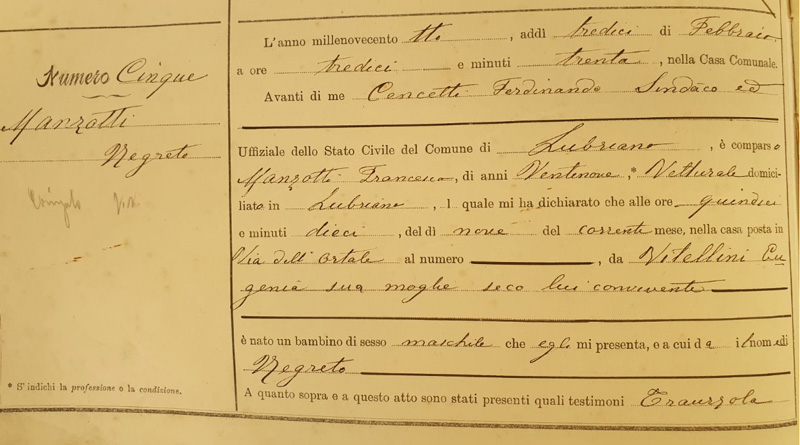 Numero Cinque
Manzotti
Negreto
* S' indichi la professione o la condizione.
L'anno millenovecento tto, addì tredici di Febbraio
a ore tredici e minuti trenta, nella Casa Comunale.
Avanti di me Cencetti Ferdinando Sindaco ed
Uffiziale dello Stato Civile del Comune di Lubriano, è comparso
Manzotti Francesco, di anni Ventinove, * Vetturale domici-
liato in Lubriano, l quale mi ha dichiarato che alle ore quindici
e minuti dieci, del dì nove del corrente mese, nella casa posta in
Via dell' Ortale al numero, da Vitellini Eu
genia sua moglie seco lui convivente
è nato un bambino di sesso maschile che egli mi presenta, e a cui dà il nome di
Negreto
A quanto sopra e a questo atto sono stati presenti quali testimoni Trauzzola